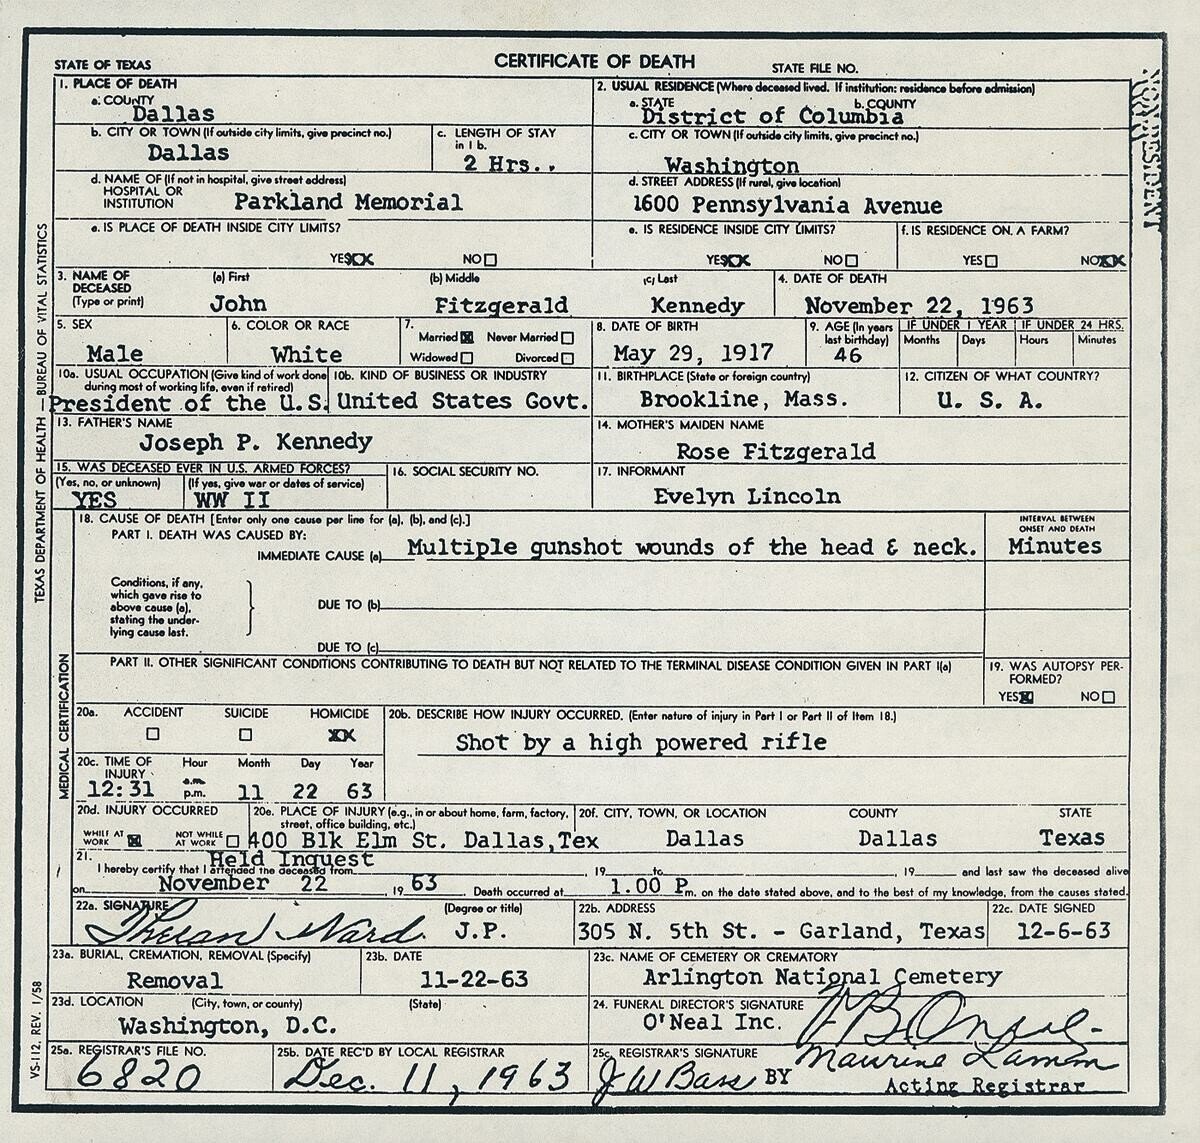 CERTIFICATE OF DEATH
STATE OF TEXAS
STATE FILE NO.
NON-RESIDENT
1. PLACE OF DEATH
a. COUNTY
Dallas
2. USUAL RESIDENCE (Where deceased lived. If institution: residence before admission)
a. STATE b. COUNTY
District of Columbia
b. CITY OR TOWN (If outside city limits, give precinct no.)
Dallas
c. LENGTH OF STAY
in 1 b.
2 Hrs..
c. CITY OR TOWN (If outside city limits, give precinct no.)
Washington
d. NAME OF (If not in hospital, give street address)
HOSPITAL OR
INSTITUTION
Parkland Memorial
d. STREET ADDRESS (If rural, give location)
1600 Pennsylvania Avenue
e. IS PLACE OF DEATH INSIDE CITY LIMITS?
YES XX NO
e. IS RESIDENCE INSIDE CITY LIMITS?
YES XX NO
f. IS RESIDENCE ON A FARM?
YES NO XX
3. NAME OF
DECEASED
(Type or print)
(a) First (b) Middle (c) Last
John Fitzgerald Kennedy
4. DATE OF DEATH
November 22, 1963
5. SEX
Male
6. COLOR OR RACE
White
7.
Married X Never Married
Widowed Divorced
8. DATE OF BIRTH
May 29, 1917
9. AGE (In years
last birthday)
46
IF UNDER 1 YEAR IF UNDER 24 HRS.
Months Days Hours Minutes
10a. USUAL OCCUPATION (Give kind of work done
during most of working life, even if retired)
President of the U.S.
10b. KIND OF BUSINESS OR INDUSTRY
United States Govt.
11. BIRTHPLACE (State or foreign country)
Brookline, Mass.
12. CITIZEN OF WHAT COUNTRY?
U. S. A.
13. FATHER'S NAME
Joseph P. Kennedy
14. MOTHER'S MAIDEN NAME
Rose Fitzgerald
15. WAS DECEASED EVER IN U.S. ARMED FORCES?
(Yes, no, or unknown) (If yes, give war or dates of service)
YES WW II
16. SOCIAL SECURITY NO.
17. INFORMANT
Evelyn Lincoln
18. CAUSE OF DEATH [Enter only one cause per line for (a), (b), and (c).]
PART I. DEATH WAS CAUSED BY:
IMMEDIATE CAUSE (a) Multiple gunshot wounds of the head & neck.
INTERVAL BETWEEN
ONSET AND DEATH
Minutes
Conditions, if any,
which gave rise to
above cause (a),
stating the under-
lying cause last.
DUE TO (b)
DUE TO (c)
PART II. OTHER SIGNIFICANT CONDITIONS CONTRIBUTING TO DEATH BUT NOT RELATED TO THE TERMINAL DISEASE CONDITION GIVEN IN PART I(a)
19. WAS AUTOPSY PER-
FORMED?
YES X NO
20a. ACCIDENT SUICIDE HOMICIDE
XX
20b. DESCRIBE HOW INJURY OCCURRED. (Enter nature of injury in Part I or Part II of Item 18.)
Shot by a high powered rifle
20c. TIME OF
INJURY
Hour Month Day Year
a.m.
p.m.
12:31 11 22 63
20d. INJURY OCCURRED
WHILE AT
WORK X
NOT WHILE
AT WORK
20e. PLACE OF INJURY (e.g., in or about home, farm, factory,
street, office building, etc.)
400 Blk Elm St. Dallas,Tex
20f. CITY, TOWN, OR LOCATION COUNTY STATE
Dallas Dallas Texas
21. Held Inquest
I hereby certify that I attended the deceased from , 19 to , 19 and last saw the deceased alive
on November 22 19 63 Death occurred at 1.00 P m. on the date stated above, and to the best of my knowledge, from the causes stated.
22a. SIGNATURE (Degree or title)
Theran Ward J.P.
22b. ADDRESS
305 N. 5th St. - Garland, Texas
22c. DATE SIGNED
12-6-63
23a. BURIAL, CREMATION, REMOVAL (Specify)
Removal
23b. DATE
11-22-63
23c. NAME OF CEMETERY OR CREMATORY
Arlington National Cemetery
23d. LOCATION (City, town, or county) (State)
Washington, D.C.
24. FUNERAL DIRECTOR'S SIGNATURE
O'Neal Inc.
25a. REGISTRAR'S FILE NO.
6820
25b. DATE REC'D BY LOCAL REGISTRAR
Dec. 11, 1963
25c. REGISTRAR'S SIGNATURE
J W Bass BY
Acting Registrar
TEXAS DEPARTMENT OF HEALTH — BUREAU OF VITAL STATISTICS
MEDICAL CERTIFICATION
VS-112, REV. 1/58